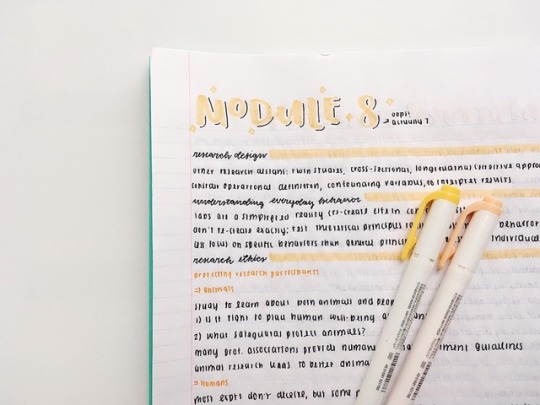 MODULE 8
oops!
→ actually 7
research design
other research designs: twin studies, cross-sectional, longitudinal
consider operational definition, confounding variables, to interpret results
understanding everyday behavior
labs are a simplified reality (re-create life in
don't re-create exactly; test theoretical principles
focus on specific behaviors than general individual
research ethics
protecting research participants
⇒ animals
study to learn about both animals and
1) is it right to play human well-being
2) what safeguards protect animals?
many prof. associations provide humane guidelines
animal research leads to better
⇒ humans
most expts don't deceive, but some